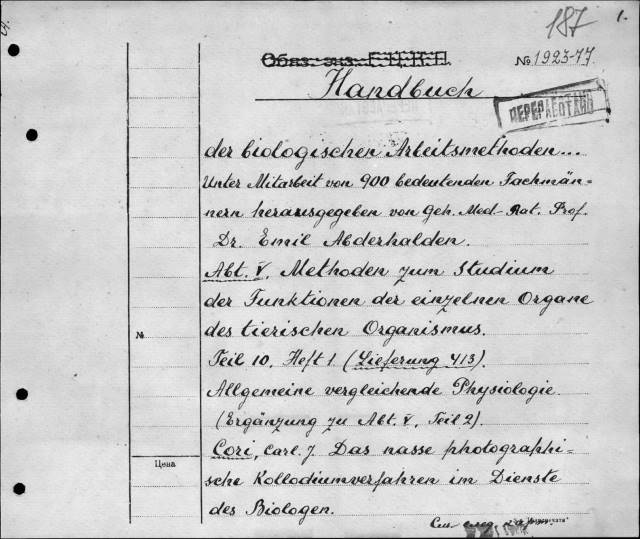 187
1.
Обяз. экз. Г.Ц.К.П.
№ 1923-77
Handbuch
ПЕРЕРАБОТАНО
der biologischen Arbeitsmethoden...
Unter Mitarbeit von 900 bedeutenden Fachmän-
nern herausgegeben von Geh. Med.- Rat. Prof.
Dr. Emil Abderhalden.
Abt. V, Methoden zum Studium
der Funktionen der einzelnen Organe
des tierischen Organismus.
№
Teil 10, Heft 1 (Lieferung 413).
Allgemeine vergleichende Physiologie.
(Ergänzung zu Abt. V, Teil 2).
Cori, Carl. J. Das nasse photographi-
Цена
sche Kollodiumverfahren im Dienste
des Biologen.
См. след.